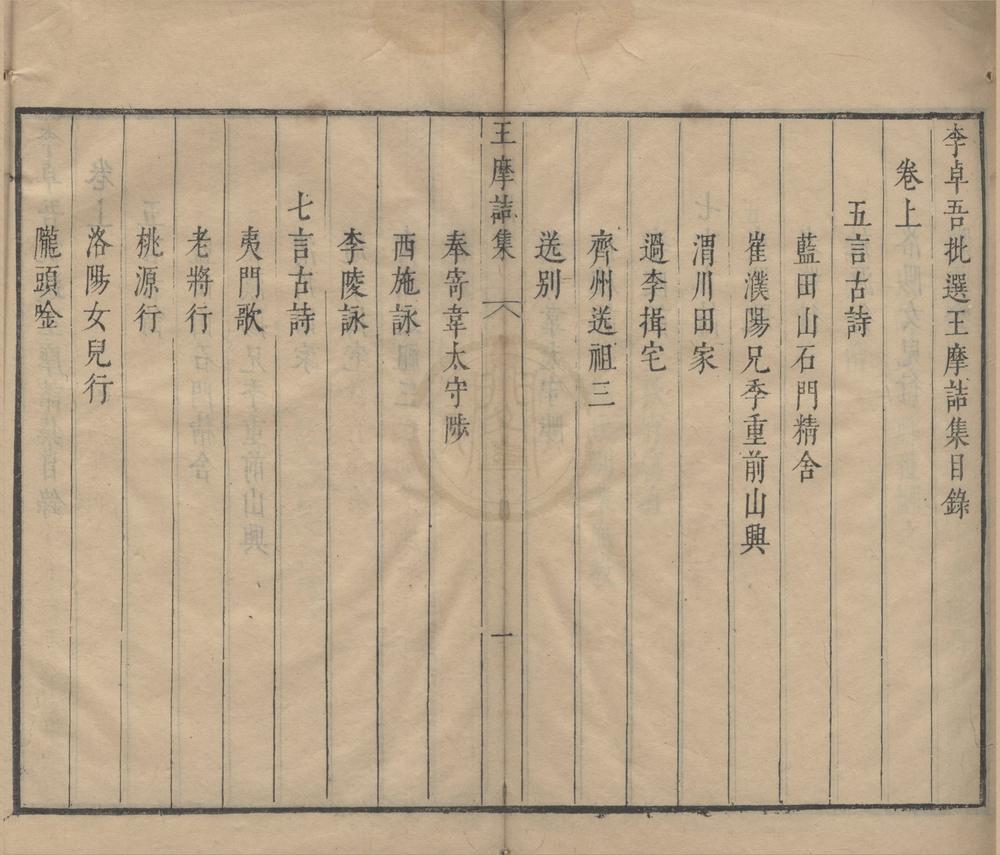 李卓吾批選王摩詰集目錄
卷上
五言古詩
藍田山石門精舍
崔濮陽兄季重前山興
渭川田家
過李揖宅
齊州送祖三
送別
王摩詰集
一
奉寄韋太守陟
西施詠
李陵詠
七言古詩
夷門歌
老將行
桃源行
洛陽女兒行
隴頭唫